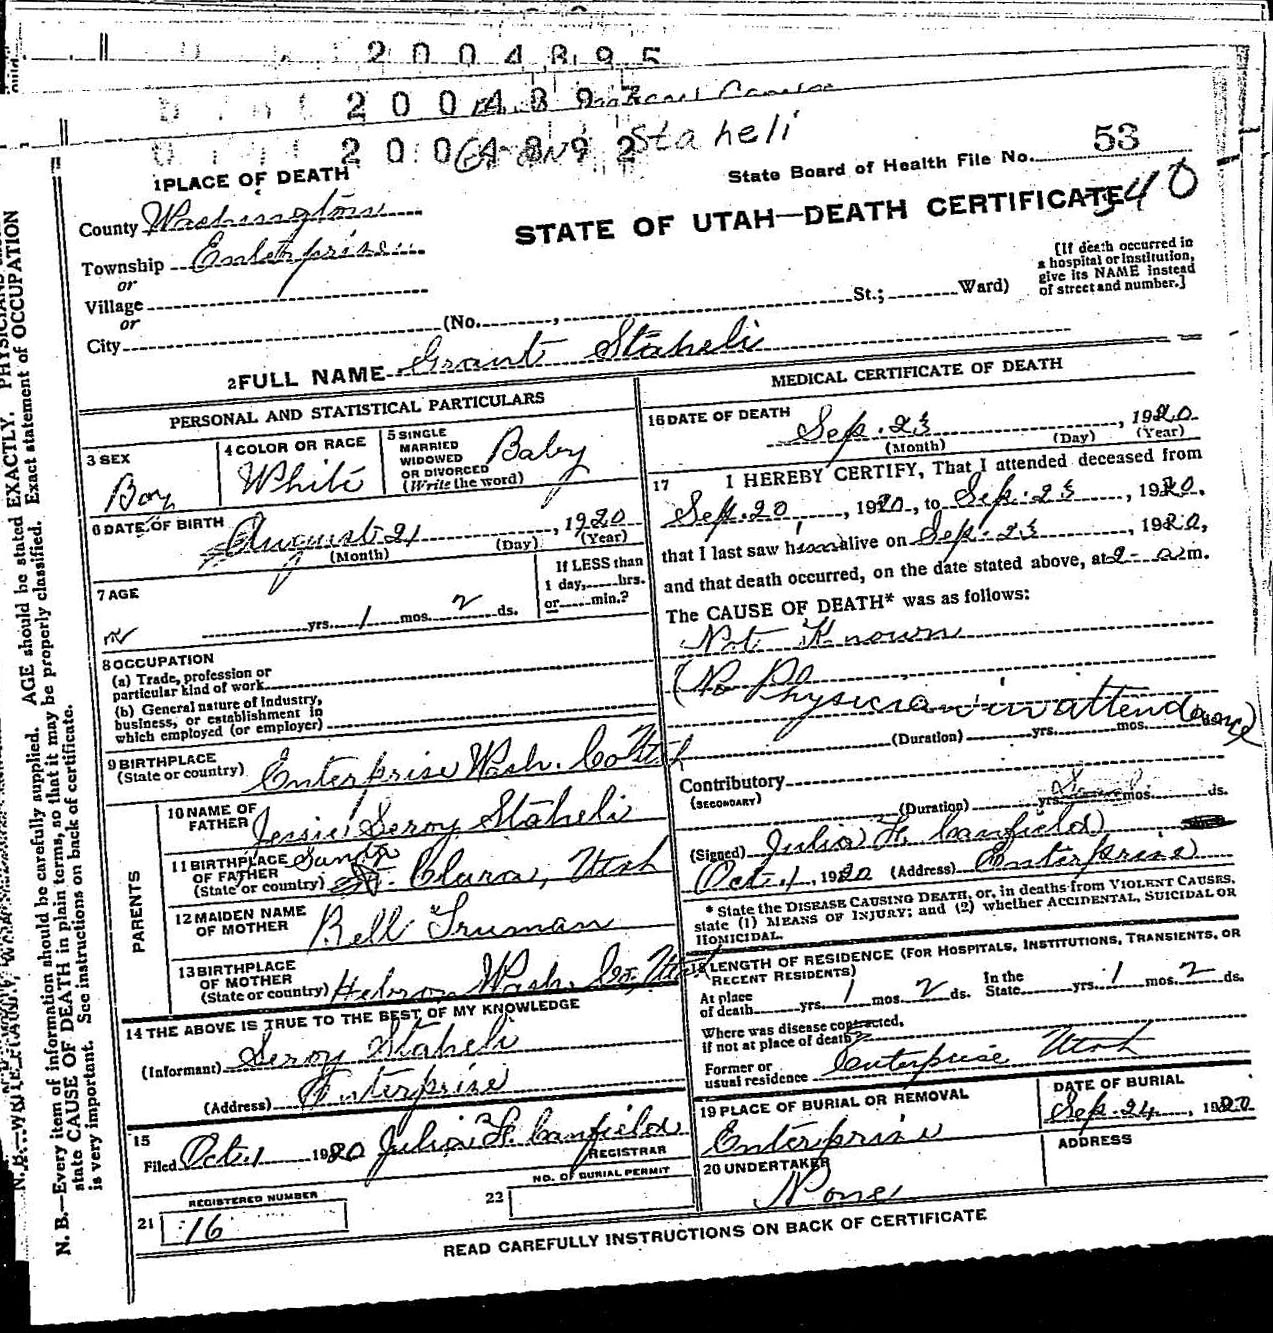 2004895
200 4897
200 4892 Staheli
State Board of Health File No. 53
340
1 PLACE OF DEATH
County Washington
STATE OF UTAH—DEATH CERTIFICATE
Township Enterprise
or
Village
or
City
(No. , St.; Ward)
[If death occurred in
a hospital or institution,
give its NAME instead
of street and number.]
2 FULL NAME Grant Staheli
PERSONAL AND STATISTICAL PARTICULARS
3 SEX
Boy
4 COLOR OR RACE
White
5 SINGLE
MARRIED
WIDOWED
OR DIVORCED
(Write the word)
Baby
6 DATE OF BIRTH
August 21, 1920
(Month) (Day) (Year)
7 AGE
yrs. 1 mos. 2 ds.
If LESS than
1 day, hrs.
or min.?
8 OCCUPATION
(a) Trade, profession or
particular kind of work
(b) General nature of industry,
business, or establishment in
which employed (or employer)
9 BIRTHPLACE
(State or country) Enterprise Wash. Co Utah
PARENTS
10 NAME OF
FATHER Jessie Leroy Staheli
11 BIRTHPLACE
OF FATHER
(State or country) Santa Clara, Utah
12 MAIDEN NAME
OF MOTHER Bell Truman
13 BIRTHPLACE
OF MOTHER
(State or country) Hebron Wash. Co, Utah
14 THE ABOVE IS TRUE TO THE BEST OF MY KNOWLEDGE
(Informant) Leroy Staheli
(Address) Enterprise
15
Filed Oct. 1 1920 Julia F. Canfield
REGISTRAR
REGISTERED NUMBER
21 16
22 NO. OF BURIAL PERMIT
MEDICAL CERTIFICATE OF DEATH
16 DATE OF DEATH
Sep. 23, 1920
(Month) (Day) (Year)
17 I HEREBY CERTIFY, That I attended deceased from
Sep. 20, 1920, to Sep. 23, 1920,
that I last saw him alive on Sep. 23, 1920,
and that death occurred, on the date stated above, at 2 - a m.
The CAUSE OF DEATH* was as follows:
Not Known
(No Physician in attendance)
(Duration) yrs. mos.
Contributory
(SECONDARY)
(Duration) yrs. mos. ds.
(Signed) Julia F. Canfield
Oct. 1, 1920 (Address) Enterprise
* State the DISEASE CAUSING DEATH, or, in deaths from VIOLENT CAUSES,
state (1) MEANS OF INJURY; and (2) whether ACCIDENTAL, SUICIDAL OR
HOMICIDAL.
18 LENGTH OF RESIDENCE (FOR HOSPITALS, INSTITUTIONS, TRANSIENTS, OR
RECENT RESIDENTS)
At place
of death yrs. 1 mos. 2 ds. In the
State yrs. 1 mos. 2 ds.
Where was disease contracted,
if not at place of death?
Former or
usual residence Enterprise Utah
19 PLACE OF BURIAL OR REMOVAL
Enterprise
DATE OF BURIAL
Sep. 24, 1920
20 UNDERTAKER
None
ADDRESS
READ CAREFULLY INSTRUCTIONS ON BACK OF CERTIFICATE
N. B.—Every item of information should be carefully supplied. AGE should be stated EXACTLY. PHYSICIANS
state CAUSE OF DEATH in plain terms, so that it may be properly classified. Exact statement of OCCUPATION
is very important. See instructions on back of certificate.